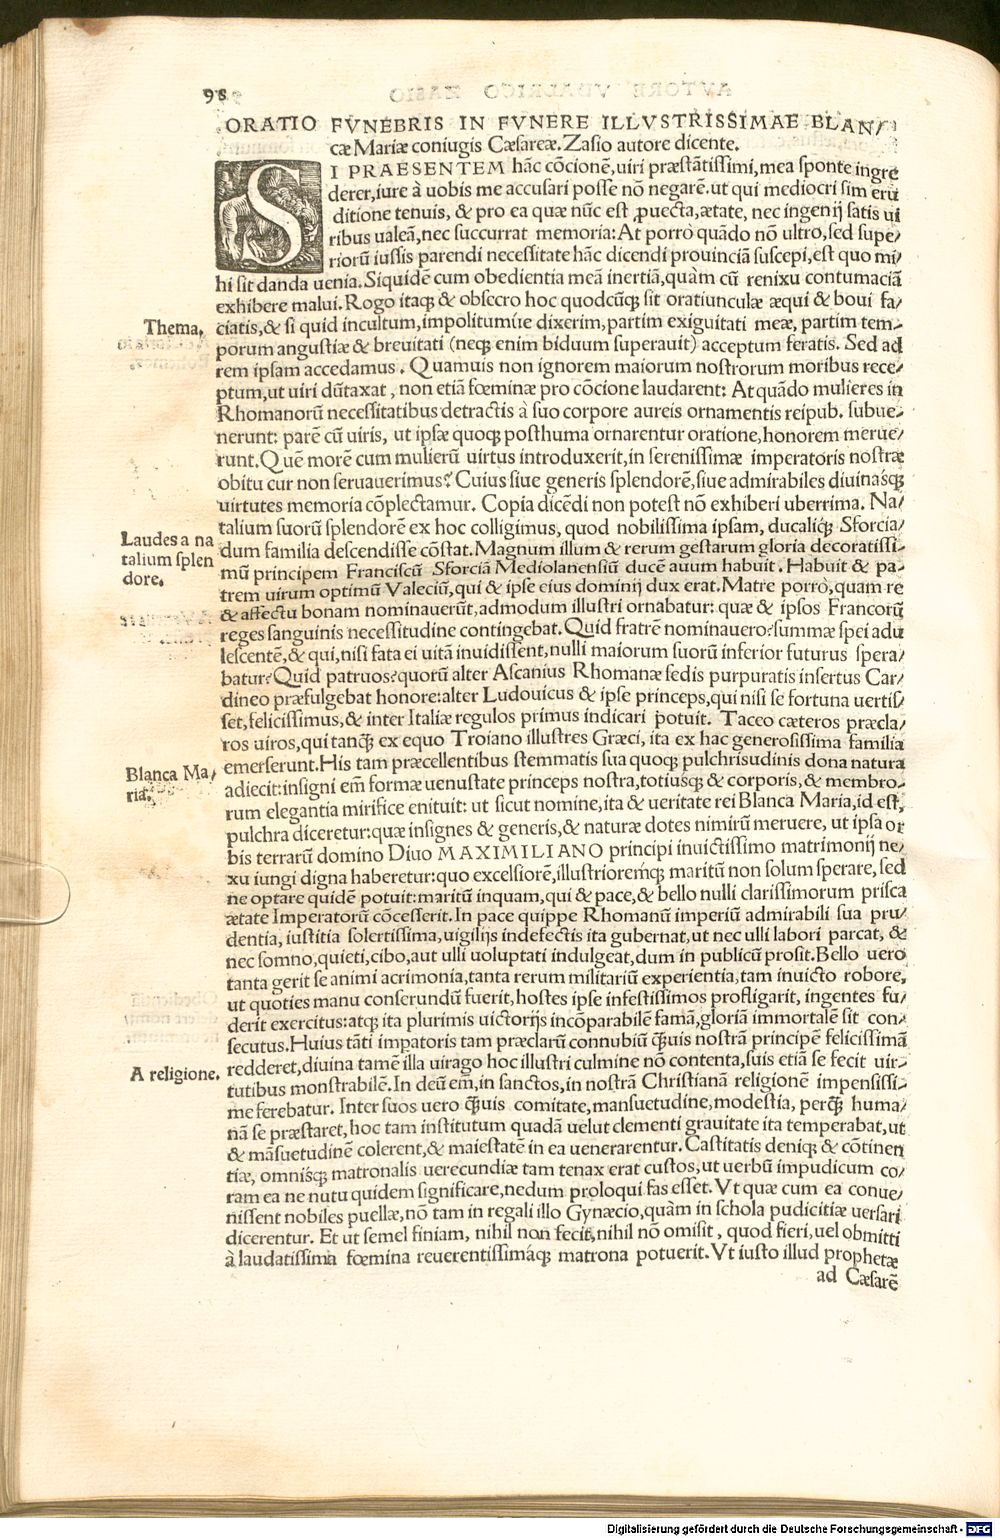 98
ORATIO FVNEBRIS IN FVNERE ILLVSTRISSIMAE BLAN/
cæ Mariæ coniugis Cæsareæ. Zasio autore dicente.
SI PRAESENTEM hãc cõcionẽ, uiri præstãtissimi, mea sponte ingre
derer, iure à uobis me accusari posse nõ negarẽ. ut qui mediocri sim eru
ditione tenuis, & pro ea quæ nũc est ꝓuecta, ætate, nec ingenij satis ui
ribus ualeã, nec succurrat memoria: At porrò quãdo nõ ultro, sed supe/
riorũ iussis parendi necessitate hãc dicendi prouinciã suscepi, est quo mi/
hi sit danda uenia. Siquidẽ cum obedientia meã inertiã, quàm cũ renixu contumaciã
exhibere malui. Rogo itaq; & obsecro hoc quodcũq; sit oratiunculæ æqui & boui fa/
Thema. ciatis, & si quid incultum, impolitumúe dixerim, partim exiguitati meæ, partim tem-
porum angustiæ & breuitati (neq; enim biduum superauit) acceptum feratis. Sed ad
rem ipsam accedamus. Quamuis non ignorem maiorum nostrorum moribus rece-
ptum, ut uiri dũtaxat, non etiã fœminæ pro cõcione laudarent: At quãdo mulieres in
Rhomanorũ necessitatibus detractis à suo corpore aureis ornamentis reipub. subue-
nerunt: parẽ cũ uiris, ut ipsæ quoq; posthuma ornarentur oratione, honorem merue/
runt. Quẽ morẽ cum mulierũ uirtus introduxerit, in serenissimæ imperatoris nostræ
obitu cur non seruauerimus? Cuius siue generis splendorẽ, siue admirabiles diuinásq;
uirtutes memoria cõplectamur. Copia dicẽdi non potest nõ exhiberi uberrima. Na/
talium suorũ splendorẽ ex hoc colligimus, quod nobilissima ipsam, ducaliq; Sforcia/
Laudes a na
talium splen
dore.
dum familia descendisse cõstat. Magnum illum & rerum gestarum gloria decoratissi-
mũ principem Franciscũ Sforciã Mediolanensiũ ducẽ auum habuit. Habuit & pa-
trem uirum optimũ Valeciũ, qui & ipse eius dominij dux erat. Matre porrò, quam re
& affectu bonam nominauerũt, admodum illustri ornabatur: quæ & ipsos Francorũ
reges sanguinis necessitudine contingebat. Quid fratrẽ nominauero? summæ spei adu
lescentẽ, & qui, nisi fata ei uitã inuidissent, nulli maiorum suorũ inferior futurus spera/
batur? Quid patruos? quorũ alter Ascanius Rhomanæ sedis purpuratis insertus Car/
dineo præfulgebat honore: alter Ludouicus & ipse princeps, qui nisi se fortuna uertis/
set, felicissimus, & inter Italiæ regulos primus indicari potuit. Taceo cæteros præcla/
ros uiros, qui tanq̃ ex equo Troiano illustres Græci, ita ex hac generosissima familia
Blanca Ma/
ria.
emerserunt. His tam præcellentibus stemmatis sua quoq; pulchrisudinis dona natura
adiecit: insigni em̃ formæ uenustate princeps nostra, totiusq; & corporis, & membro-
rum elegantia mirifice enituit: ut sicut nomine, ita & ueritate rei Blanca Maria, id est,
pulchra diceretur: quæ insignes & generis, & naturæ dotes nimirũ meruere, ut ipsa or
bis terrarũ domino Diuo MAXIMILIANO principi inuictissimo matrimonij ne/
xu iungi digna haberetur: quo excelsiorẽ, illustrioremq́; maritũ non solum sperare, sed
ne optare quidẽ potuit: maritũ inquam, qui & pace, & bello nulli clarissimorum prisca
ætate Imperatorũ cõcesserit. In pace quippe Rhomanũ imperiũ admirabili sua pru/
dentia, iustitia solertissima, uigilijs indefectis ita gubernat, ut nec ulli labori parcat, &
nec somno, quieti, cibo, aut ulli uoluptati indulgeat, dum in publicũ prosit. Bello uero
tanta gerit se animi acrimonia, tanta rerum militariũ experientia, tam inuicto robore,
ut quoties manu conserundũ fuerit, hostes ipse infestissimos profligarit, ingentes fu/
derit exercitus: atq; ita plurimis uictorijs incõparabilẽ famã, gloriã immortalẽ sit con-
secutus. Huius tãti impatoris tam præclarũ connubiũ q̃uis nostrã principẽ felicissimã
A religione. redderet, diuina tamẽ illa uirago hoc illustri culmine nõ contenta, suis etiã se fecit uir-
tutibus monstrabilẽ. In deũ em̃, in sanctos, in nostrã Christianã religionẽ impensissi-
me ferebatur. Inter suos uero q̃uis comitate, mansuetudine, modestia, perq̃ huma/
nã se præstaret, hoc tam institutum quadã uelut clementi grauitate ita temperabat, ut
& mãsuetudinẽ colerent, & maiestatẽ in ea uenerarentur. Castitatis deniq; & cõtinen
tiæ, omnisq; matronalis uerecundiæ tam tenax erat custos, ut uerbũ impudicum co/
ram ea ne nutu quidem significare, nedum proloqui fas esset. Vt quæ cum ea conue/
nissent nobiles puellæ, nõ tam in regali illo Gynæcio, quàm in schola pudicitiæ uersari
dicerentur. Et ut semel finiam, nihil non fecit, nihil nõ omisit, quod fieri, uel obmitti
à laudatissima fœmina reuerentissimáq; matrona potuerit. Vt iusto illud prophetæ
ad Cæsarẽ
Digitalisierung gefördert durch die Deutsche Forschungsgemeinschaft - DFG